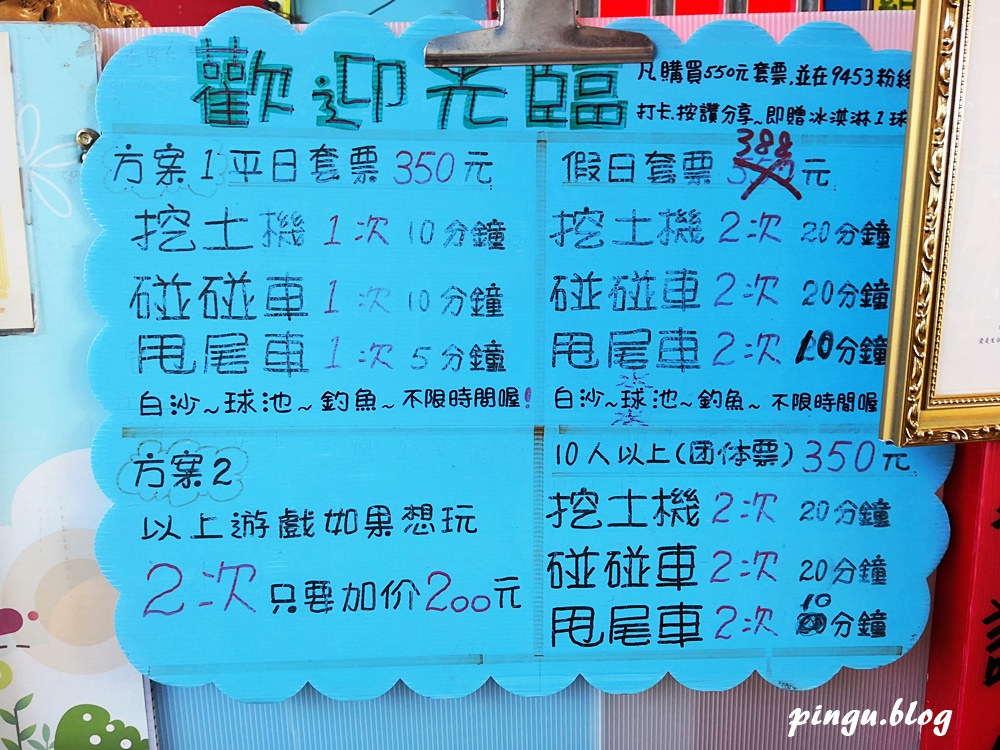 歡迎光臨
凡購買550元套票,並在9453粉絲
打卡.按讚分享~即贈冰淇淋1球
方案1平日套票350元
挖土機1次10分鐘
碰碰車1次10分鐘
甩尾車1次5分鐘
白沙~球池~釣魚~不限時間喔!
假日套票388元
挖土機2次20分鐘
碰碰車2次20分鐘
甩尾車2次10分鐘
白沙~球池~釣魚~不限時間喔
方案2
以上遊戲如果想玩
2次只要加价200元
10人以上(团体票)350元
挖土機2次20分鐘
碰碰車2次20分鐘
甩尾車2次10分鐘
pingu.blog